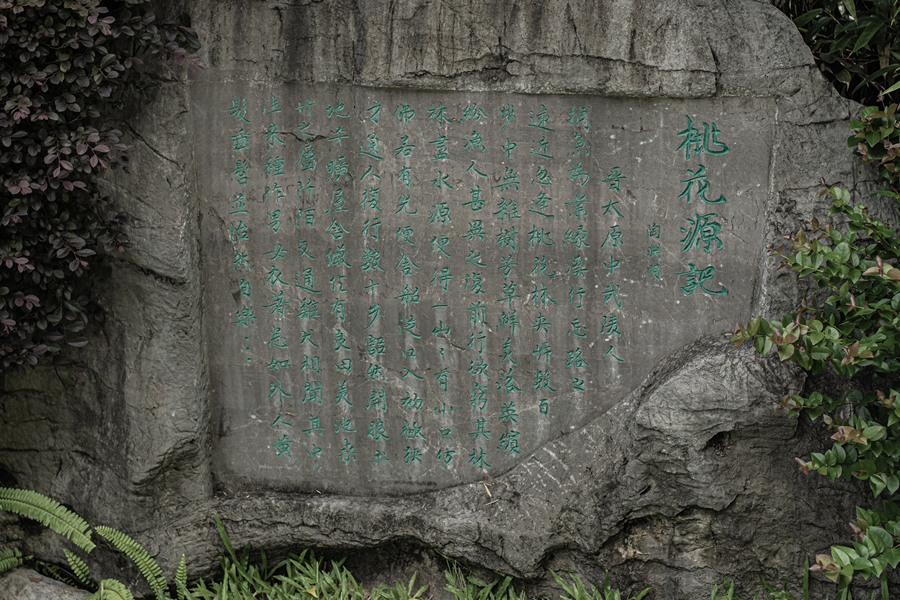 桃花源記
陶淵明
晉太原中武陵人
捕魚為業緣溪行忘路之
遠近忽逢桃花林夾岸數百
步中無雜樹芳草鮮美落英繽
紛漁人甚異之復前行欲窮其林
林盡水源便得一山々有小口彷
彿若有光便舍船從口入初極狹
才通人復行數十步豁然開朗土
地平曠屋舍儼然有良田美池桑
竹之屬阡陌交通雞犬相聞其中
往來種作男女衣著悉如外人黃
髮垂髫並怡然自樂…